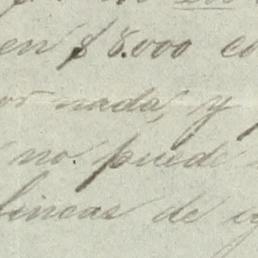 en $ 8.000 co
or nada, y
no puede
fincas de ig